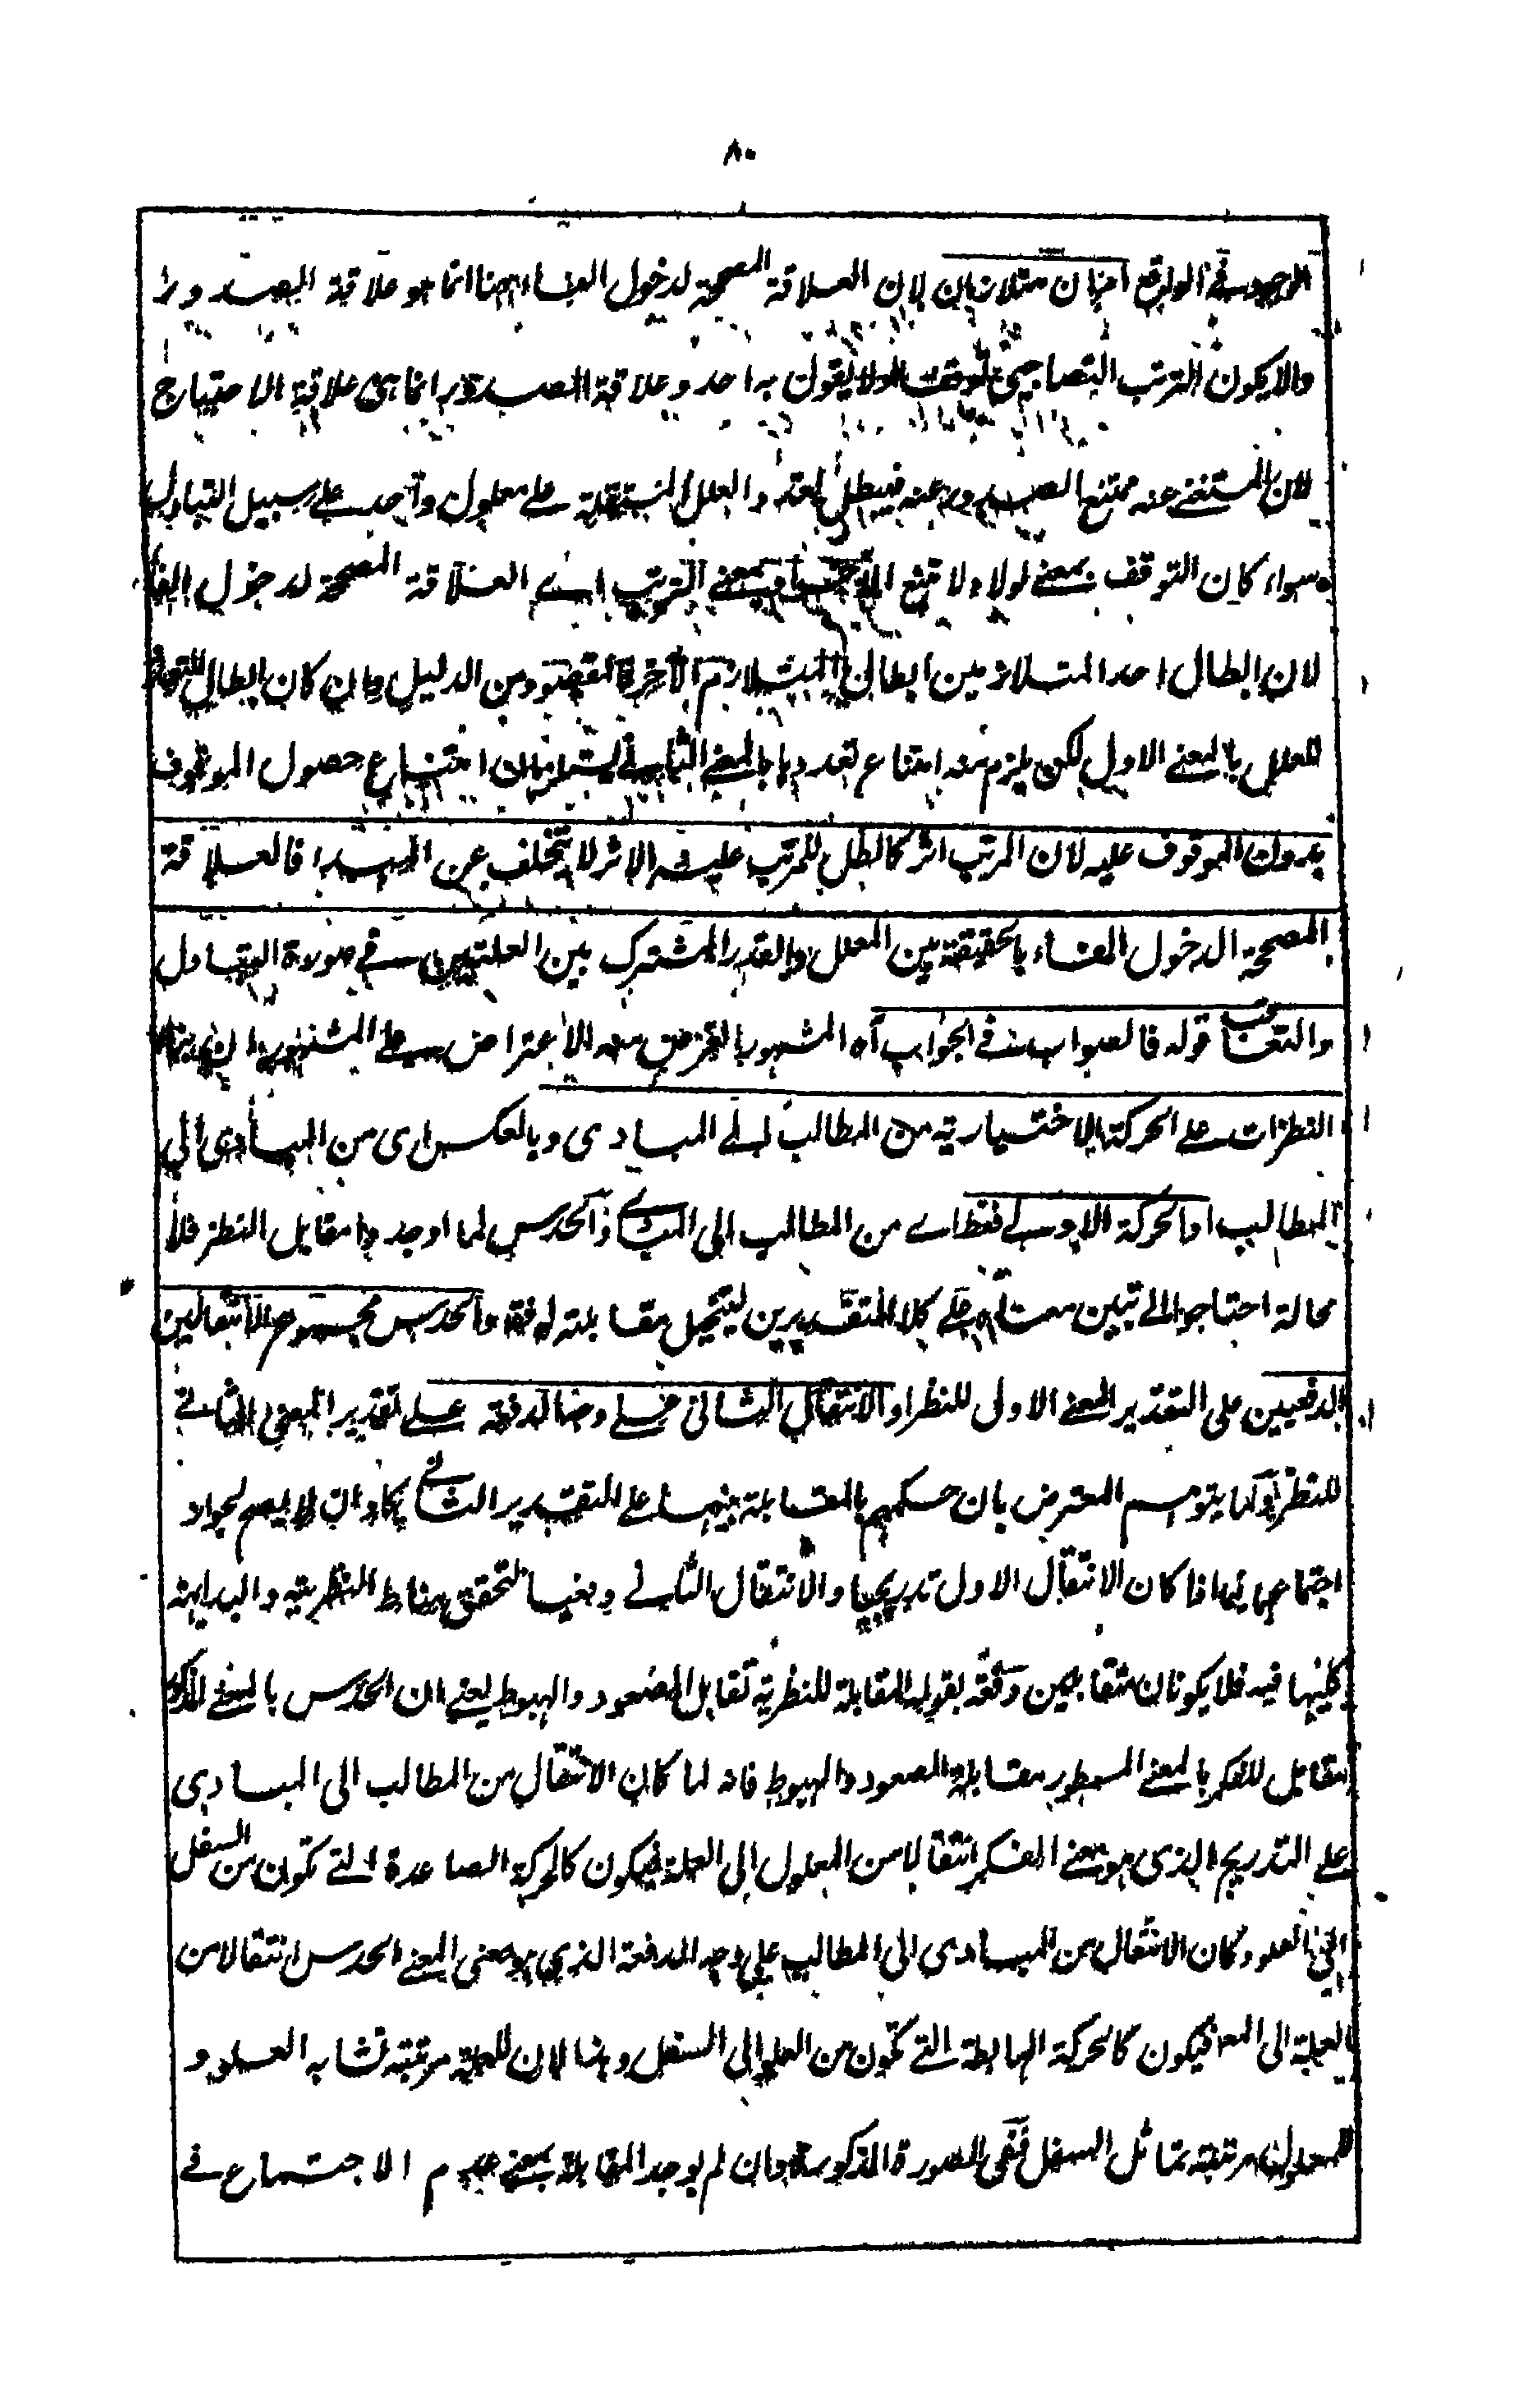 ٨٠
الوجود في الواقع امران متلازمان لان العلاقة المصححة لدخول الفاء ههنا انما هو علاقة الصدور
والا يكون الترتب التصاحبي توقفا ولا يقول به احد وعلاقة الصدور انما هى علاقة الاحتياج
لان المستغنے عنه ممتنع الصدور عنه فيبطل تعدد العلل المستقلة علے معلول واحد علے سبيل التبادل
سواء كان التوقف بمعنے لولاه لامتنع او بمعنے الترتب اے العلاقة المصححة لدخول الفاء
لان ابطال احد المتلازمين ابطال المتلازم الآخر فالمقصود من الدليل وان كان ابطال التعدد
للعلل بالمعنے الاول لكن يلزم منه امتناع تعددها بالمعنے الثانے امتناع حصول الموقوف
بدون الموقوف عليه لان المرتب اثر كالظل للمرتب عليه والاثر لا يتخلف عن المبدا فالعلاقة
المصححة الدخول الفاء بالحقيقة بين المعلل والقدر المشترك بين العلتين فے صورة التبادل
والتعاقب قوله فالصواب فے الجواب آه المشهور بالغرض منه الاعتراض علے المشهور
النظرات علے الحركة الاختيارية من المطالب الے المبادى وبالعكس اى من المبادى الى
المطالب او الحركة الاولے فقط اے من المطالب الى المبادے والحدس لما اوجدوا مقابل النظر فلا
محالة احتاجوا الے تبين معناه علے كلا التقديرين ليتحصل مقابلته له فقط والحدس مجموع الانتقالين
الدفعيين على التقدير المعنے الاول للنظر او الانتقال الثانى علے وجه الدفعة علے تقدير المعنے الثانے
للنظر ولما يتوهم المعترض بان حكمهم بالمقابلة بينهما علے التقدير الثانے يكاد ان لا يصح لجواز
اجتماعهما فيما اذا كان الانتقال الاول تدريجيا والانتقال الثانے دفعيا لتحقق مناط النظرية والبداهة
كليهما فيه فلا يكونان متقابلين دفعه بقوله المقابلة للنظرية تقابل الصعود والهبوط يعنے ان الحدس بالمعنے المذكور
مقابل للفكر بالمعنے المسطور مقابلة الصعود والهبوط فانه لما كان الانتقال من المطالب الى المبادى
علے التدريج الذى هو معنے الفكر انتقالا من المعلول الى العلة فيكون كالحركة الصاعدة التے تكون من السفل
الى العلو وكان الانتقال من المبادى الى المطالب على وجه الدفعة الذى هو معنى المعنے الحدس انتقالا من
العلة الى المعه فيكون كالحركة الهابطة التے تكون من العلو الى السفل وهذا لان للعلة مرتبة تشابه العلو و
للمعلول مرتبة تماثل السفل ففى الصورة المذكورة وان لم يوجد المقابلة بمعنے عدم الاجتماع فے